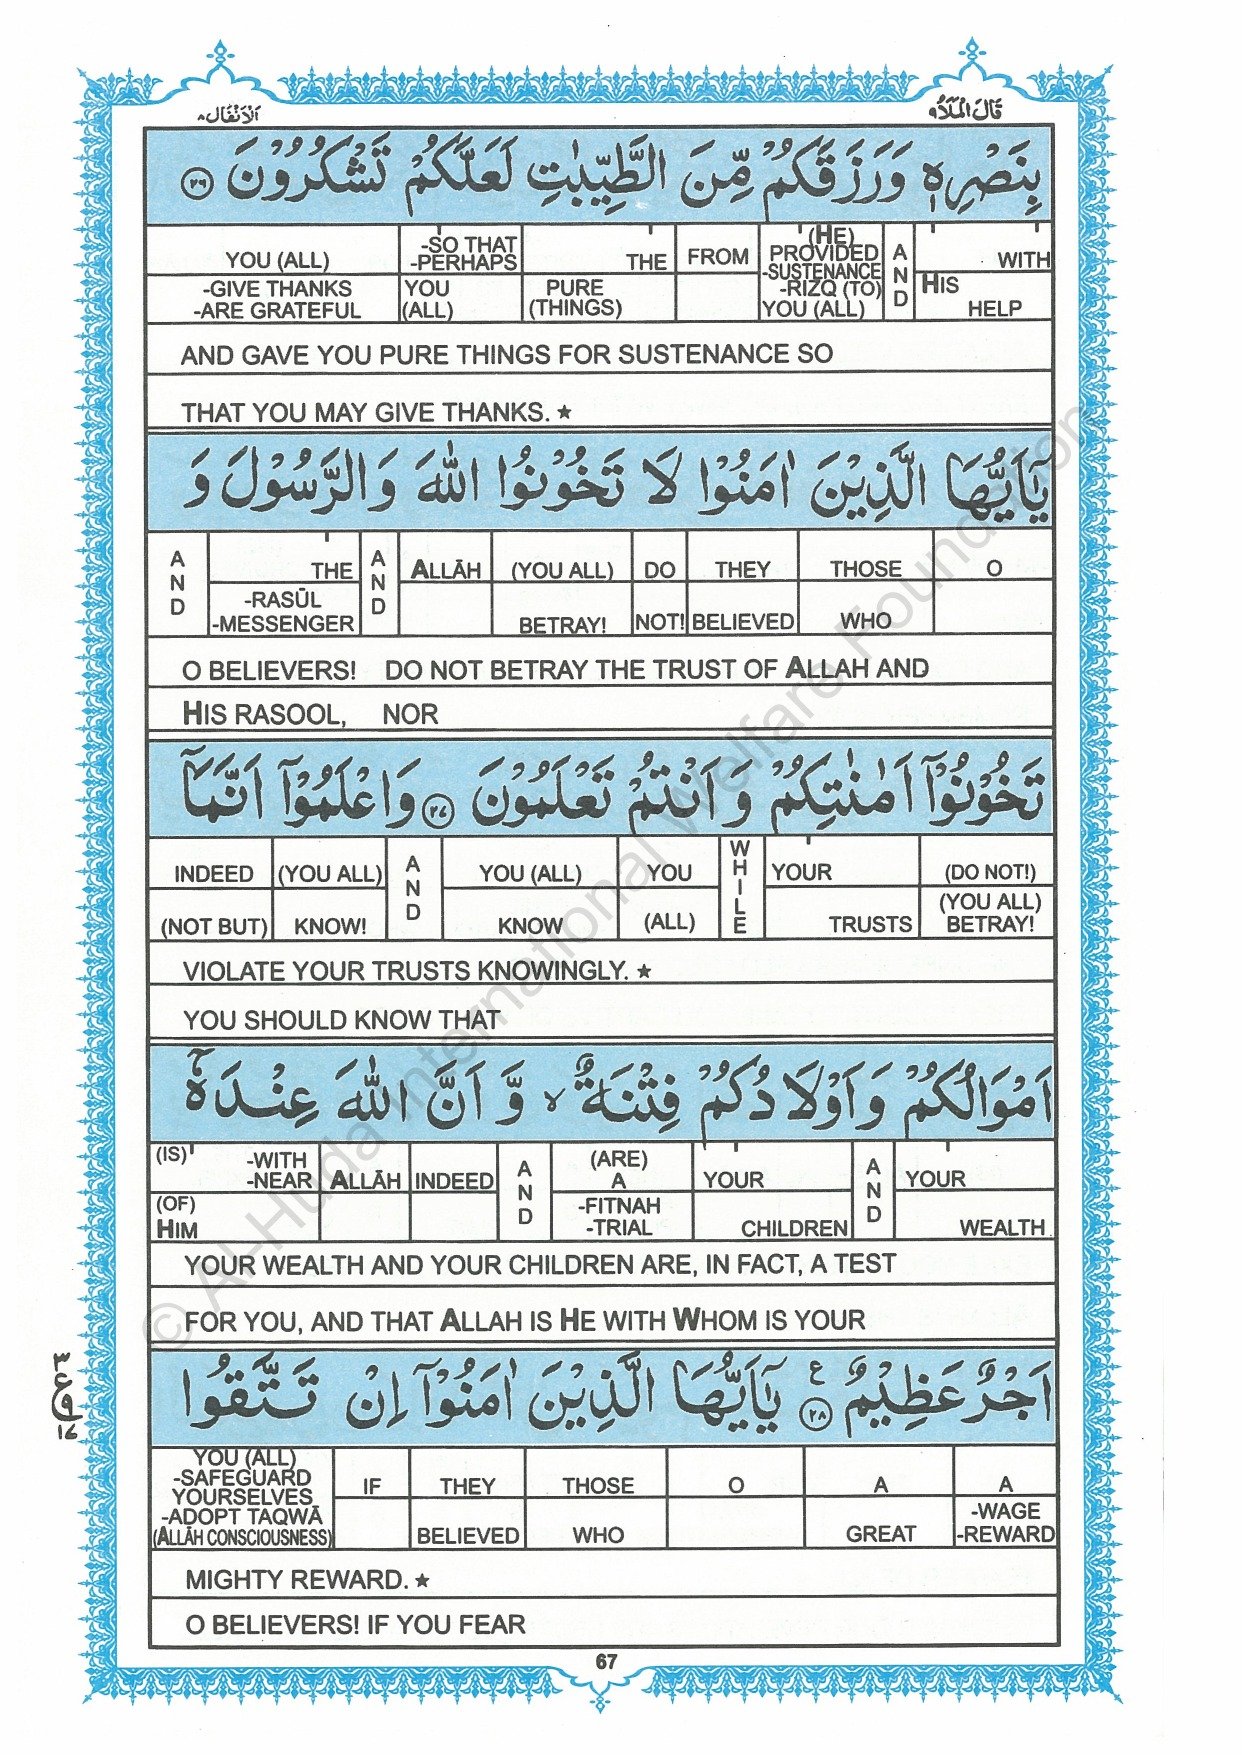 اَلْاَنْفَال ٨
قَالَ الْمَلَاُ ٩
بِنَصْرِهٖ وَرَزَقَكُمْ مِّنَ الطَّيِّبٰتِ لَعَلَّكُمْ تَشْكُرُوْنَ ٢٦
YOU (ALL) -SO THAT -PERHAPS THE FROM (HE) PROVIDED -SUSTENANCE -RIZQ (TO) YOU (ALL) AND WITH
-GIVE THANKS -ARE GRATEFUL YOU (ALL) PURE (THINGS) HIS HELP
AND GAVE YOU PURE THINGS FOR SUSTENANCE SO
THAT YOU MAY GIVE THANKS. ★
يٰۤاَيُّهَا الَّذِيْنَ اٰمَنُوْا لَا تَخُوْنُوا اللّٰهَ وَالرَّسُوْلَ وَ
AND THE AND ALLĀH (YOU ALL) DO THEY THOSE O
-RASŪL -MESSENGER BETRAY! NOT! BELIEVED WHO
O BELIEVERS! DO NOT BETRAY THE TRUST OF ALLAH AND
HIS RASOOL, NOR
تَخُوْنُوْۤا اَمٰنٰتِكُمْ وَاَنْتُمْ تَعْلَمُوْنَ ٢٧ وَاعْلَمُوْۤا اَنَّمَاۤ
INDEED (YOU ALL) AND YOU (ALL) YOU WHILE YOUR (DO NOT!)
(NOT BUT) KNOW! KNOW (ALL) TRUSTS (YOU ALL) BETRAY!
VIOLATE YOUR TRUSTS KNOWINGLY. ★
YOU SHOULD KNOW THAT
اَمْوَالُكُمْ وَاَوْلَادُكُمْ فِتْنَةٌ ۙ وَّاَنَّ اللّٰهَ عِنْدَهٗۤ
(IS) -WITH -NEAR ALLĀH INDEED AND (ARE) A YOUR AND YOUR
(OF) HIM -FITNAH -TRIAL CHILDREN WEALTH
YOUR WEALTH AND YOUR CHILDREN ARE, IN FACT, A TEST
FOR YOU, AND THAT ALLAH IS HE WITH WHOM IS YOUR
اَجْرٌ عَظِيْمٌ ٢٨ ع يٰۤاَيُّهَا الَّذِيْنَ اٰمَنُوْۤا اِنْ تَتَّقُوا
٣
ع
١٧
YOU (ALL) -SAFEGUARD YOURSELVES -ADOPT TAQWĀ (ALLĀH CONSCIOUSNESS) IF THEY THOSE O A A
BELIEVED WHO GREAT -WAGE -REWARD
MIGHTY REWARD. ★
O BELIEVERS! IF YOU FEAR
67
© Al-Huda International Welfare Foundation